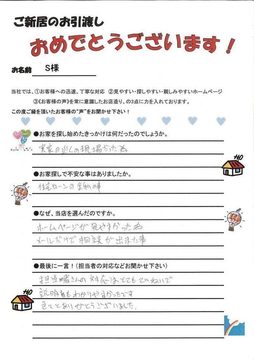 ご新居のお引渡し
おめでとうございます!
お名前 S様
当社では、①お客様への迅速、丁寧な対応 ②見やすい・探しやすい・親しみやすいホームページ
③《お客様の声》を常に意識したお店造り、の3点に力を入れております。
この度ご縁を頂いたお客様の"声"をお聞かせ下さい!
●お家を探し始めたきっかけは何だったのでしょうか。
●お家探しで不安な事はありましたか。
住宅ローンの金利の事
●なぜ、当店を選んだのですか。
ホームページが見やすかった為
メールだけで相談が出来た事
●最後に一言!(担当者の対応などお聞かせ下さい)
担当 さんの対応はとてもていねいで
説明もわかりやすかったです
ありがとうございました